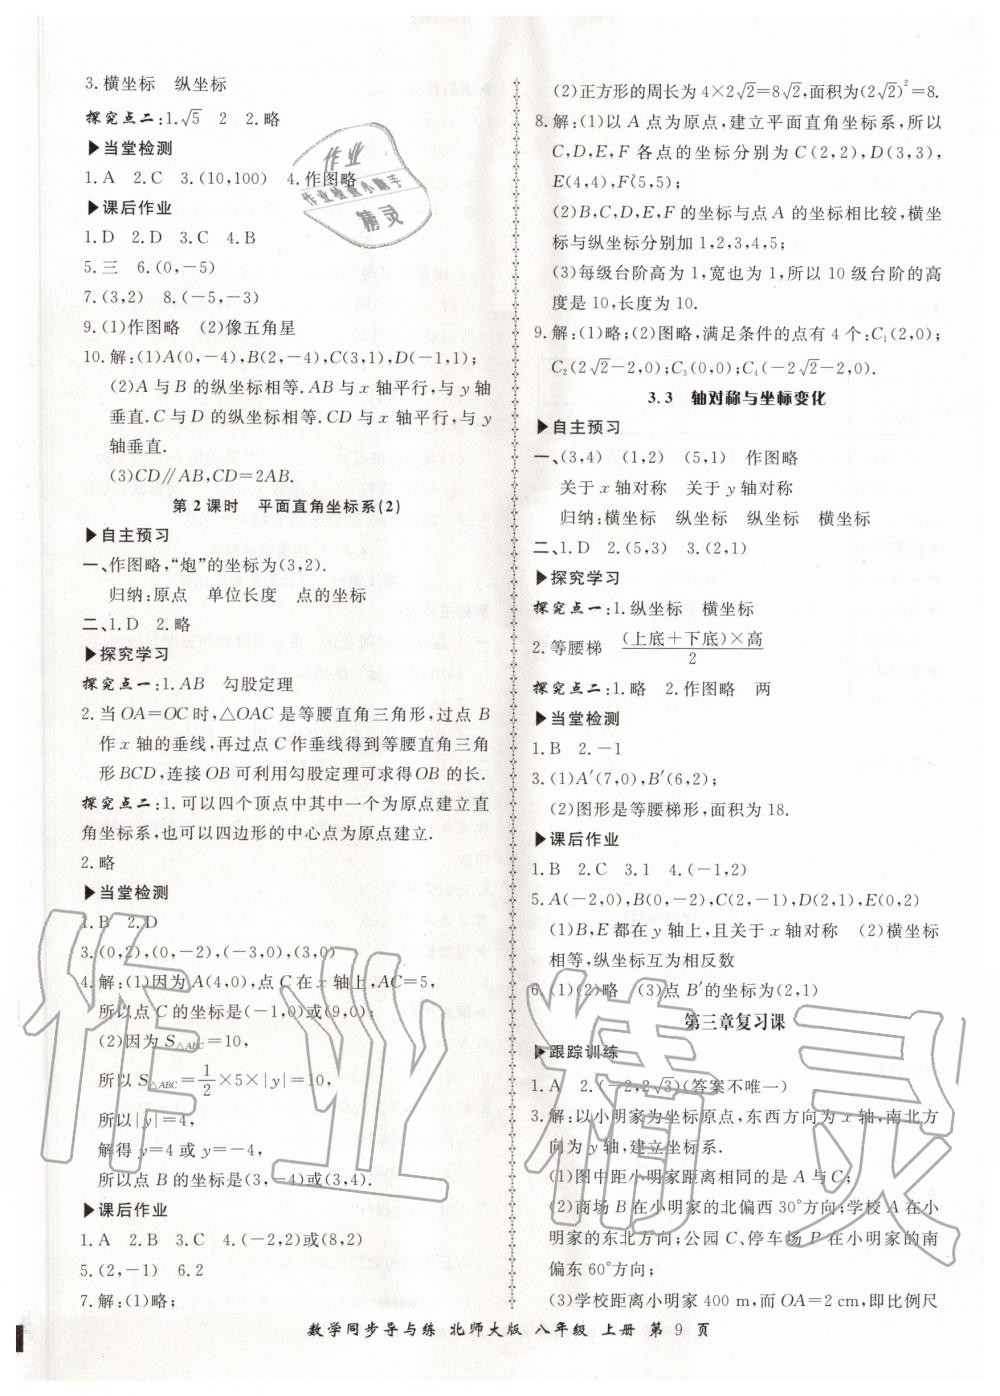 3.横坐标　纵坐标
探究点二:1.√5　2　2.略
▶当堂检测
1.A　2.C　3.(10,100)　4.作图略
▶课后作业
1.D　2.D　3.C　4.B
5.三　6.(0,-5)
7.(3,2)　8.(-5,-3)
9.(1)作图略　(2)像五角星
10.解:(1)A(0,-4),B(2,-4),C(3,1),D(-1,1);
(2)A 与 B 的纵坐标相等.AB 与 x 轴平行,与 y 轴
垂直.C 与 D 的纵坐标相等.CD 与 x 轴平行,与 y
轴垂直.
(3)CD∥AB,CD=2AB.
第 2 课时　平面直角坐标系(2)
▶自主预习
一、作图略,“炮”的坐标为(3,2).
归纳:原点　单位长度　点的坐标
二、1.D　2.略
▶探究学习
探究点一:1.AB　勾股定理
2.当 OA=OC 时,△OAC 是等腰直角三角形,过点 B
作 x 轴的垂线,再过点 C 作垂线得到等腰直角三角
形 BCD,连接 OB 可利用勾股定理可求得 OB 的长.
探究点二:1.可以四个顶点中其中一个为原点建立直
角坐标系,也可以四边形的中心点为原点建立.
2.略
▶当堂检测
1.B　2.D
3.(0,2),(0,-2),(-3,0),(3,0)
4.解:(1)因为 A(4,0),点 C 在 x 轴上,AC=5,
所以点 C 的坐标是(-1,0)或(9,0);
(2)因为 S△ABC=10,
所以 S△ABC=1/2×5×|y|=10,
所以|y|=4,
解得 y=4 或 y=-4,
所以点 B 的坐标是(3,-4)或(3,4).
▶课后作业
1.A　2.B　3.C　4.(-2,2)或(8,2)
5.(2,-1)　6.2
7.解:(1)略;
(2)正方形的周长为 4×2√2=8√2,面积为(2√2)²=8.
8.解:(1)以 A 点为原点,建立平面直角坐标系,所以
C,D,E,F 各点的坐标分别为 C(2,2),D(3,3),
E(4,4),F(5,5);
(2)B,C,D,E,F 的坐标与点 A 的坐标相比较,横坐
标与纵坐标分别加 1,2,3,4,5;
(3)每级台阶高为 1,宽也为 1,所以 10 级台阶的高
度是 10,长度为 10.
9.解:(1)略;(2)图略,满足条件的点有 4 个:C₁(2,0);
C₂(2√2-2,0);C₃(0,0);C₄(-2√2-2,0).
3.3　轴对称与坐标变化
▶自主预习
一、(3,4)　(1,2)　(5,1)　作图略
关于 x 轴对称　关于 y 轴对称
归纳:横坐标　纵坐标　纵坐标　横坐标
二、1.D　2.(5,3)　3.(2,1)
▶探究学习
探究点一:1.纵坐标　横坐标
2.等腰梯　(上底+下底)×高/2
探究点二:1.略　2.作图略　两
▶当堂检测
1.B　2.-1
3.(1)A′(7,0),B′(6,2);
(2)图形是等腰梯形,面积为 18.
▶课后作业
1.B　2.C　3.1　4.(-1,2)
5.A(-2,0),B(0,-2),C(2,-1),D(2,1),E(0,2)
(1)B,E 都在 y 轴上,且关于 x 轴对称　(2)横坐标
相等,纵坐标互为相反数
6.(1)(2)略　(3)点 B′的坐标为(2,1)
第三章复习课
▶跟踪训练
1.A　2.(-2,2√3)(答案不唯一)
3.解:以小明家为坐标原点,东西方向为 x 轴,南北方
向为 y 轴,建立坐标系.
(1)图中距小明家距离相同的是 A 与 C;
(2)商场 B 在小明家的北偏西 30°方向;学校 A 在小
明家的北偏东 45°方向;公园 C、停车场 P 在小明家的南
偏东 60°方向;
(3)学校距离小明家 400 m,而 OA=2 cm,即比例尺
数学同步导与练　北师大版　八年级　上册　第 9 页
作业
作业检查小助手
精灵
作业精灵